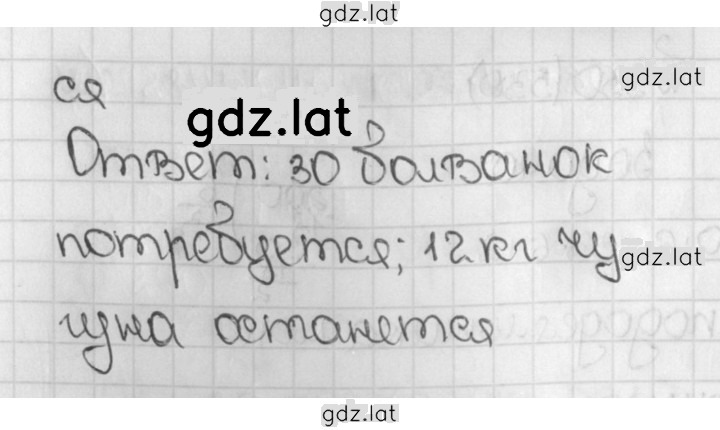 gdz.lat
ся
gdz.lat
gdz.lat
Ответ: 30 болванок
потребуется; 12 кг чу
gdz.lat
гуна останется
gdz.lat